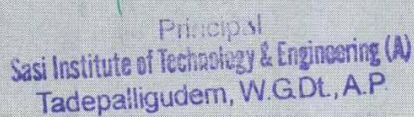 Principal
Sasi Institute of Technology & Engineering (A)
Tadepalligudem, W.G.Dt., A.P